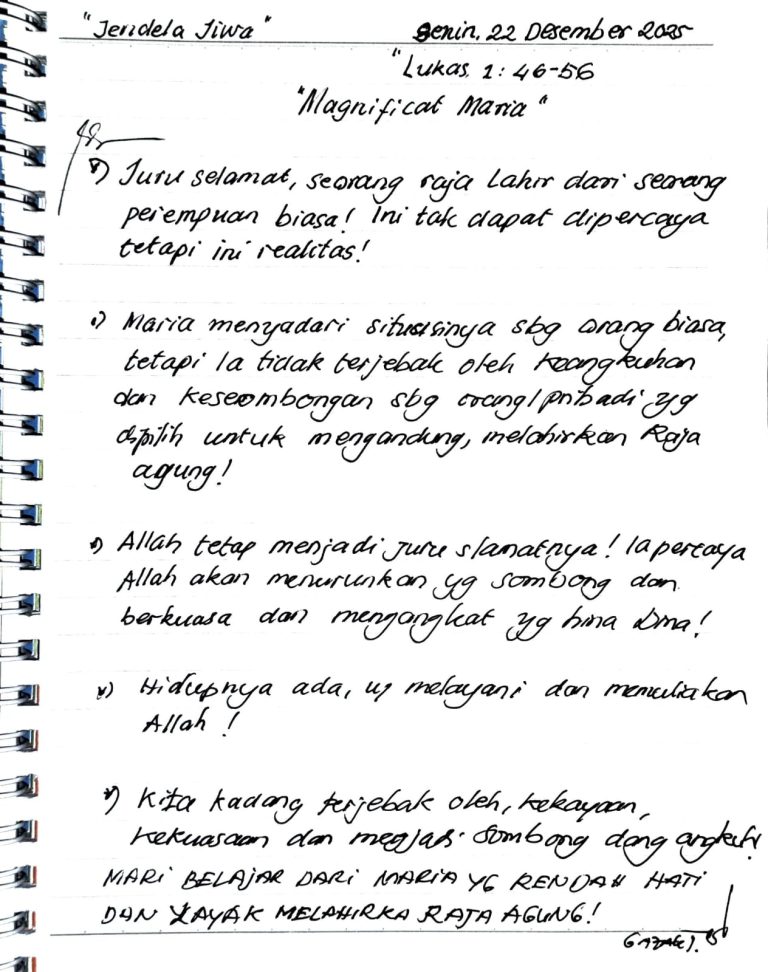 "Jendela Jiwa" Senin, 22 Desember 2025
"Lukas 1: 46-56
"Magnificat Maria"
*) Juru selamat, seorang raja lahir dari seorang
perempuan biasa! Ini tak dapat dipercaya
tetapi ini realitas!
*) Maria menyadari situsisinya sbg orang biasa,
tetapi Ia tidak terjebak oleh keangkuhan
dan keseombongan sbg orang/pribadi yg
dipilih untuk mengandung, melahirkan Raja
agung!
*) Allah tetap menjadi juru slamatnya! Ia percaya
Allah akan menurunkan yg sombong dan
berkuasa dan mengangkat yg hina dina!
*) Hidupnya ada, u/ melayani dan memuliakan
Allah!
*) Kita kadang terjebak oleh, kekayaan,
kekuasaan dan menjadi sombong dang angkuh!
MARI BELAJAR DARI MARIA YG RENDAH HATI
DAN LAYAK MELAHIRKA RAJA AGUNG!